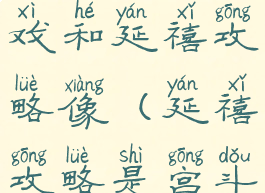 xì hé yán xǐ gōng
戏和延禧攻
lüè xiàng yán xǐ
略像（延禧
gōng lüè shì gōng dǒu
攻略是宫斗